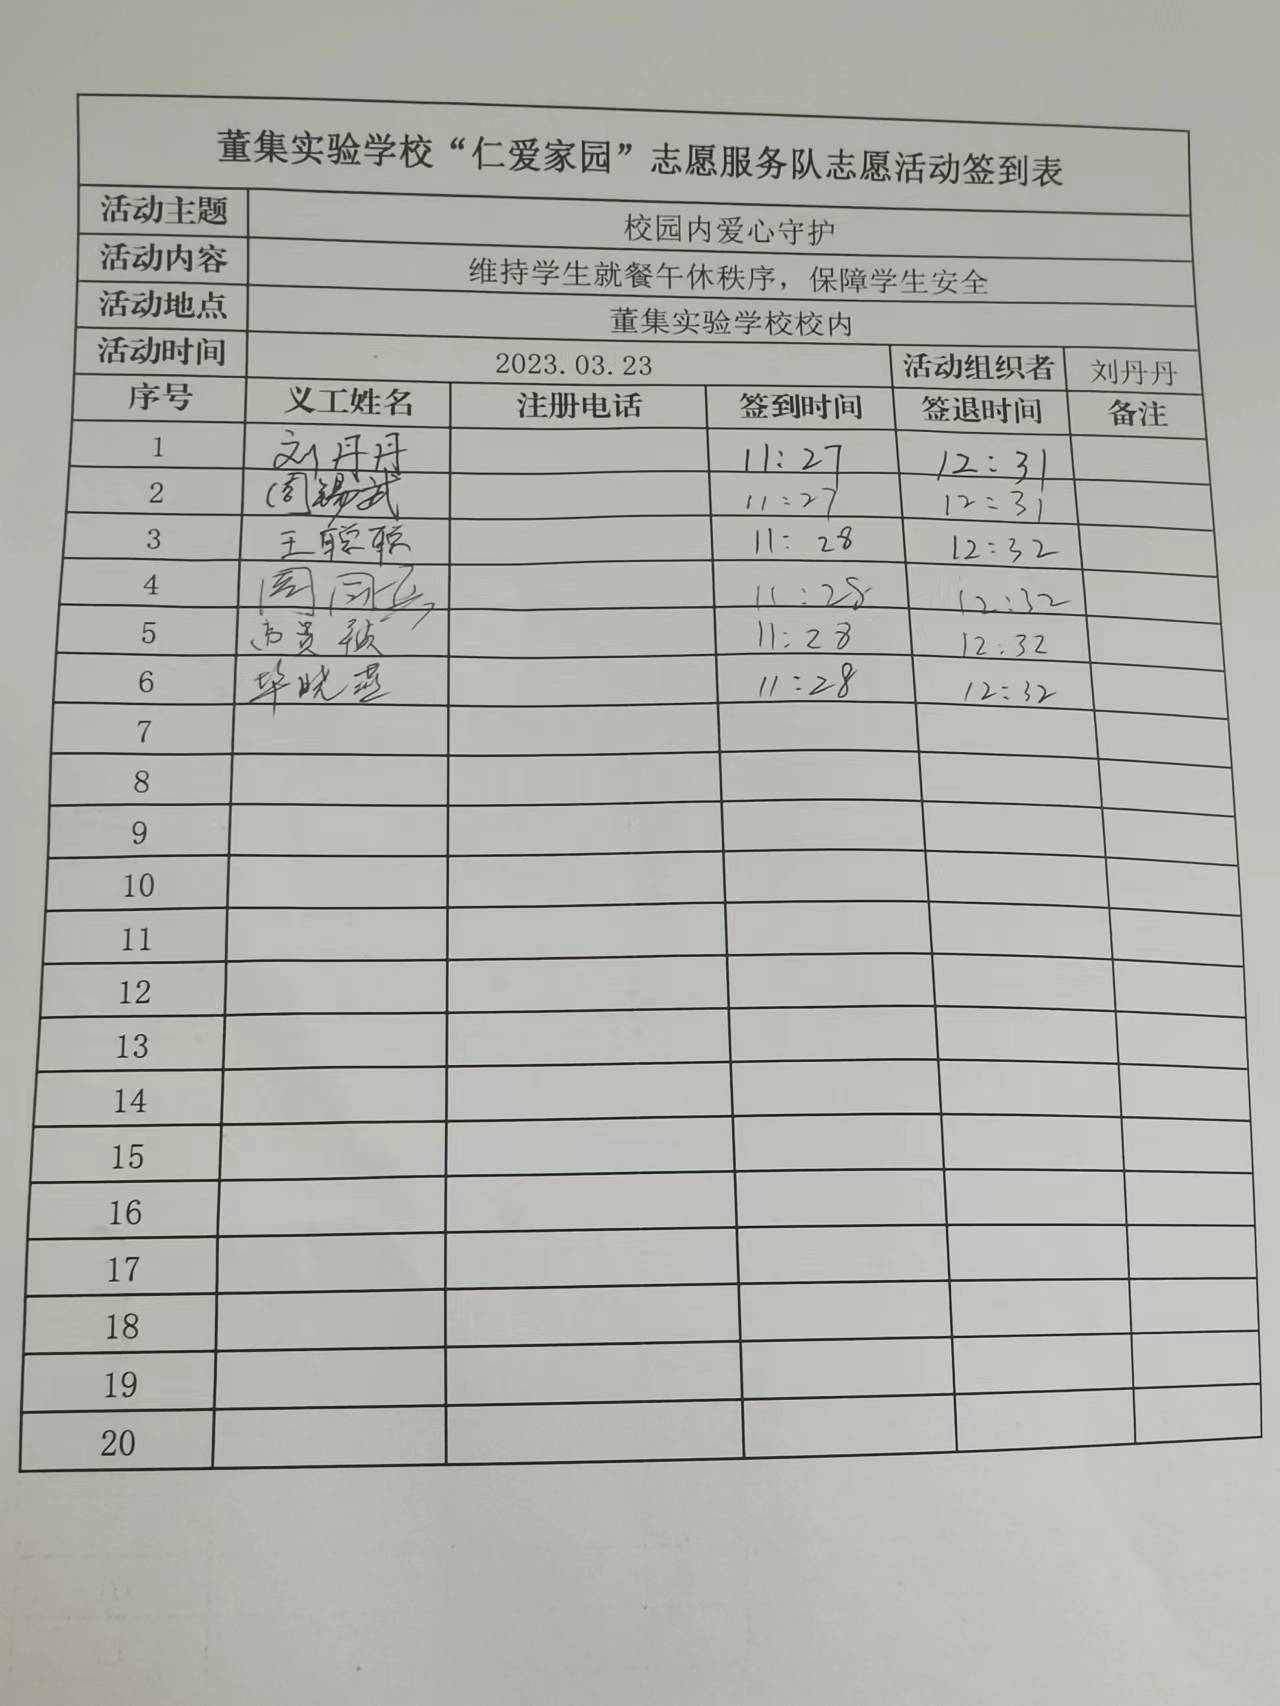 董集实验学校“仁爱家园”志愿服务队志愿活动签到表
活动主题 校园内爱心守护
活动内容 维持学生就餐午休秩序，保障学生安全
活动地点 董集实验学校校内
活动时间 2023.03.23 活动组织者 刘丹丹
序号 义工姓名 注册电话 签到时间 签退时间 备注
1 刘丹丹 11:27 12:31
2 周锡武 11:27 12:31
3 王聪聪 11:28 12:32
4 周 11:28 12:32
5 尚贵祯 11:28 12:32
6 毕晓燕 11:28 12:32
7
8
9
10
11
12
13
14
15
16
17
18
19
20